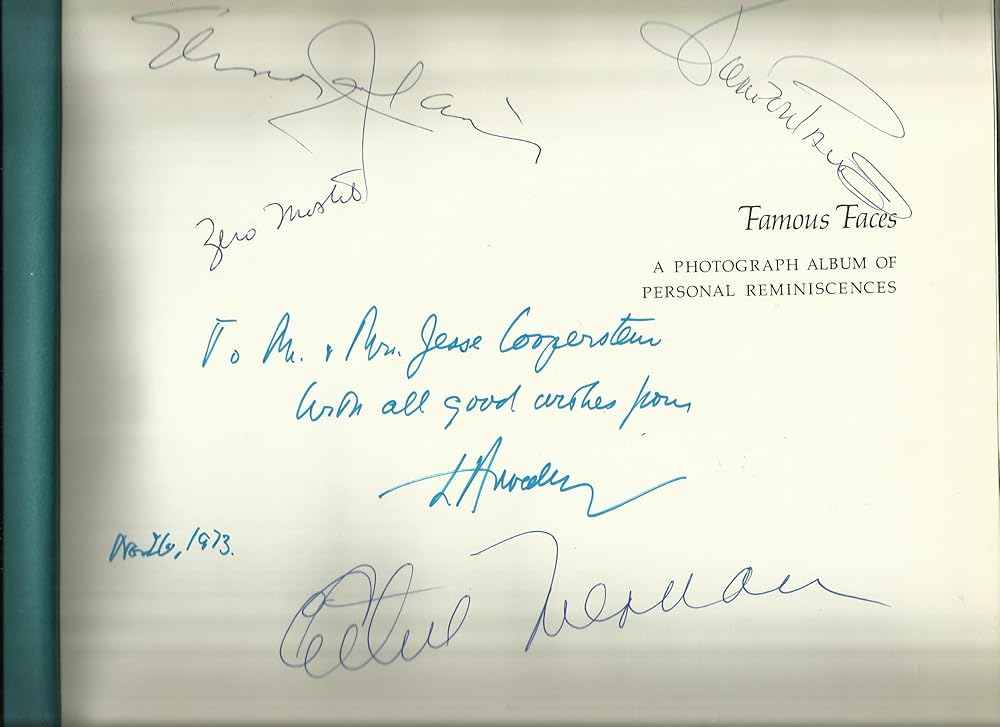 Zero Mostel
Famous Faces
A PHOTOGRAPH ALBUM OF
PERSONAL REMINISCENCES
To Mr. & Mrs. Jesse Cooperstein
With all good wishes from
1973.
Ethel Merman